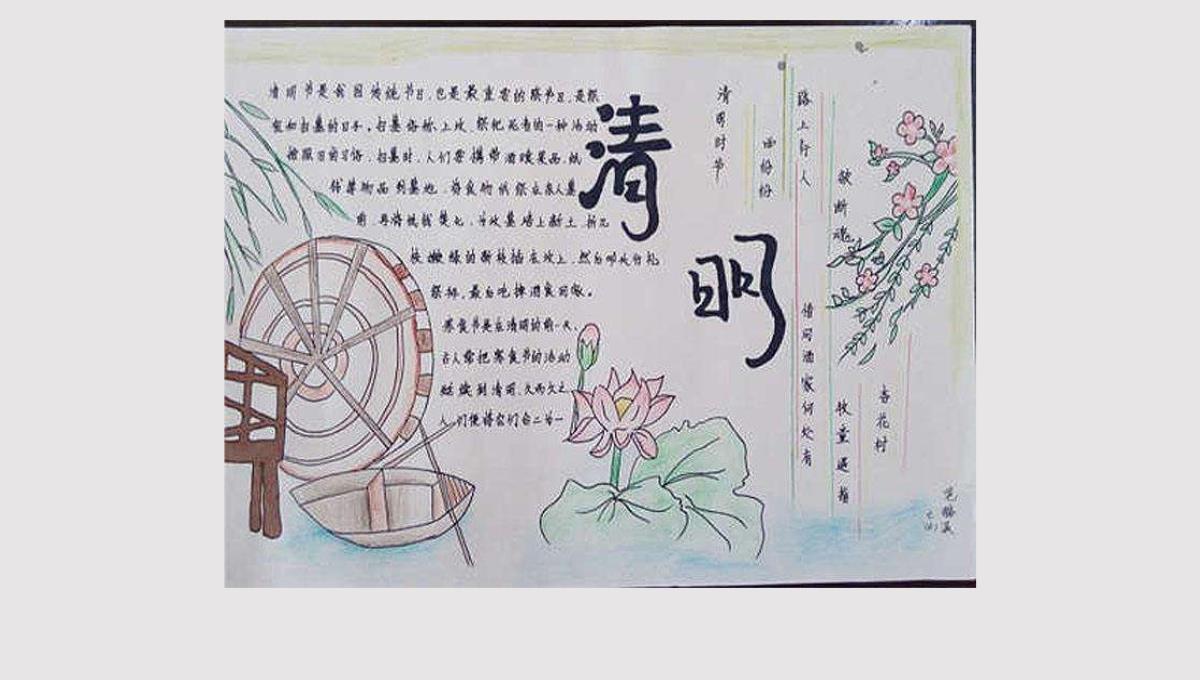 清明节是我国传统节日,也是最重要的祭节日,是祭
祖和扫墓的日子。扫墓俗称上坟,祭祀死者的一种活动
按照习俗,扫墓时,人们要携带酒食果品,纸
钱等物品到墓地,将食物供祭在亲人墓
前,再将纸钱焚化,为坟墓培上新土,折几
枝嫩绿的新枝插在坟上,然后叩头行礼
祭拜,最后吃掉酒食回家。
寒食节是在清明的前一天,
古人常把寒食节的活动
延续到清明,久而久之
人们便将它们合二为一
清明
清明时节
雨纷纷
路上行人
欲断魂
借问酒家何处有
牧童遥指
杏花村